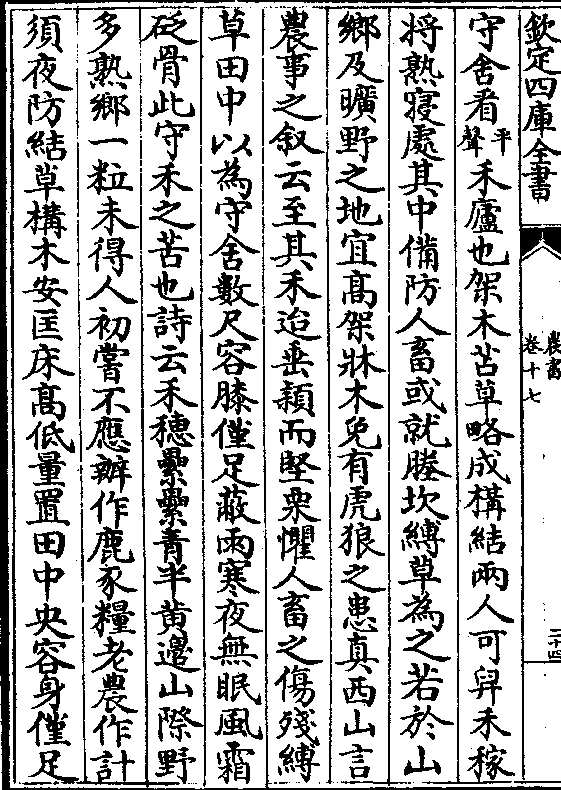 欽定四庫全書
農書
卷十七
二十四
守舍看平聲禾廬也架木苫草略成構結兩人可舁禾稼
將熟寢處其中備防人畜或就塍坎縛草為之若於山
鄉及曠野之地宜高架牀木免有虎狼之患真西山言
農事之叙云至其禾迨垂穎而堅栗懼人畜之傷殘縛
草田中以為守舍數尺容膝僅足蔽雨寒夜無眠風霜
砭骨此守禾之苦也詩云禾穗纍纍青半黄邊山際野
多熟鄉一粒未得人初嘗不應辦作鹿豕糧老農作計
須夜防結草構木安匡床高低量置田中央容身僅足